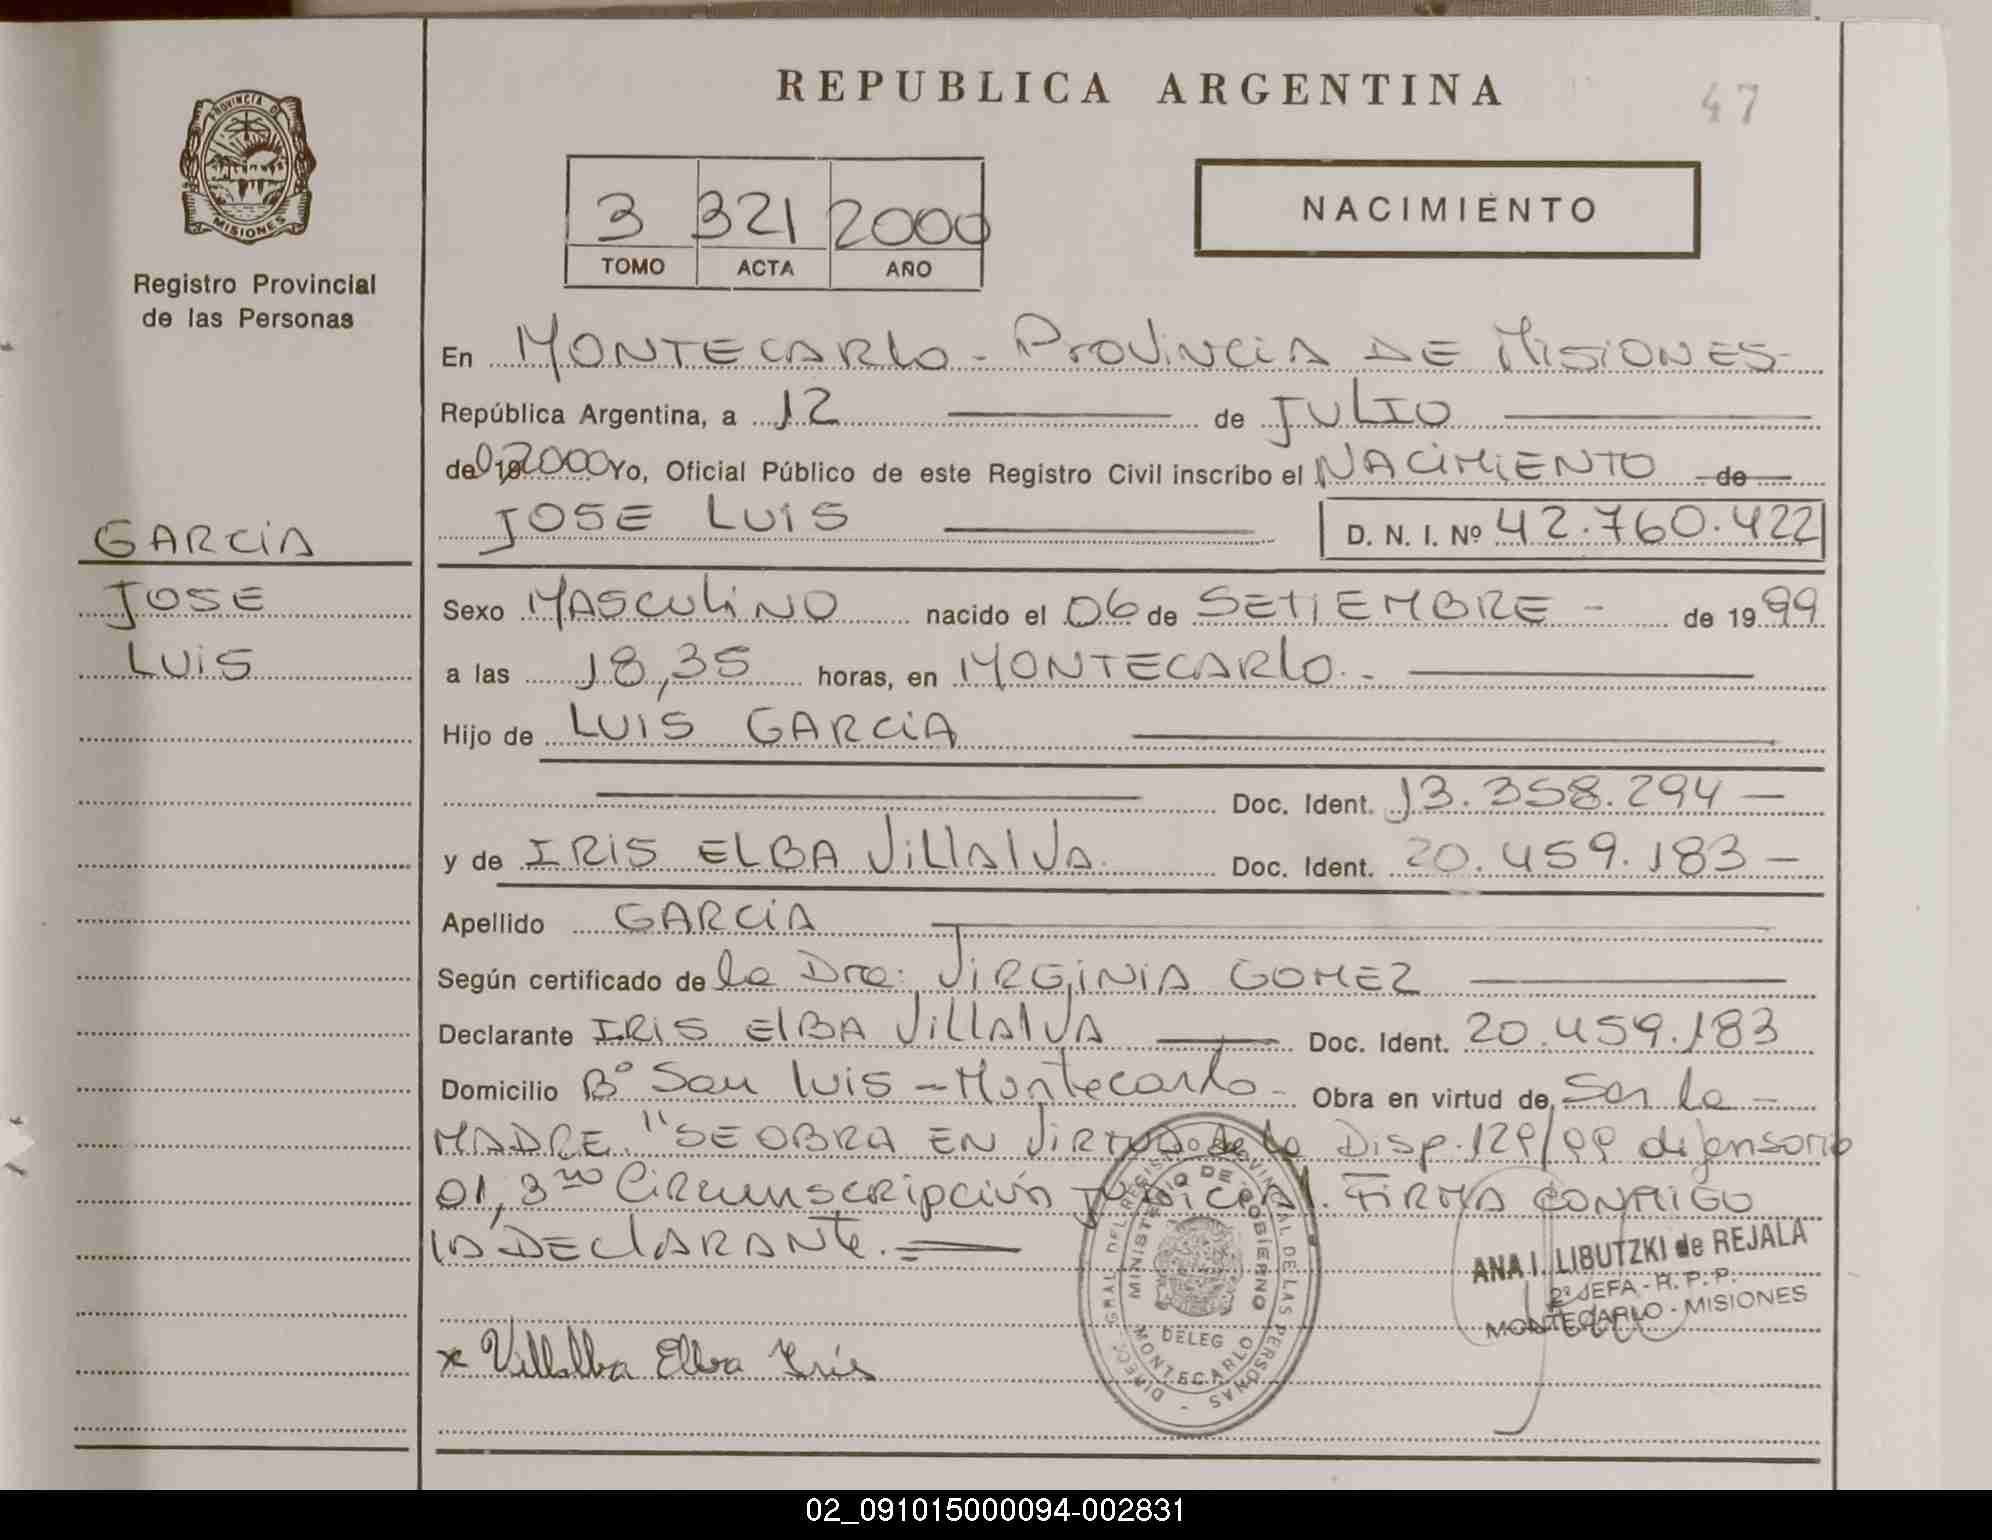 REPUBLICA ARGENTINA
47
PROVINCIA DE
MISIONES
Registro Provincial
de las Personas
3 321 2000
TOMO ACTA AÑO
NACIMIENTO
En MONTECARLO - PROVINCIA DE MISIONES-
República Argentina, a 12 de JULIO
de 19 2000 Yo, Oficial Público de este Registro Civil inscribo el NACIMIENTO de
JOSE LUIS D. N. I. Nº 42.760.422
GARCIA
JOSE
LUIS
Sexo MASCULINO nacido el 06 de SETIEMBRE - de 1999
a las 18,35 horas, en MONTECARLO.-
Hijo de LUIS GARCIA
Doc. Ident. 13.358.294 -
y de IRIS ELBA VILLALVA. Doc. Ident. 20.459.183 -
Apellido GARCIA
Según certificado de la Dra: VIRGINIA GOMEZ
Declarante IRIS ELBA VILLALVA Doc. Ident. 20.459.183
Domicilio Bº San Luis - Montecarlo - Obra en virtud de, Ser la -
MADRE. "SE OBRA EN VIRTUD de la Disp. 129/99 defensoria
01, 3ra Circunscripción Judicial. FIRMA CONMIGO
LA DECLARANTE.=
x Villalba Elba Iris
DIRECC. GRAL DEL REGISTRO PROVINCIAL DE LAS PERSONAS -
MINISTERIO DE GOBIERNO
DELEG
MONTECARLO
ANA I. LIBUTZKI de REJALA
2ª JEFA - R. P. P.
MONTECARLO - MISIONES
02_091015000094-002831